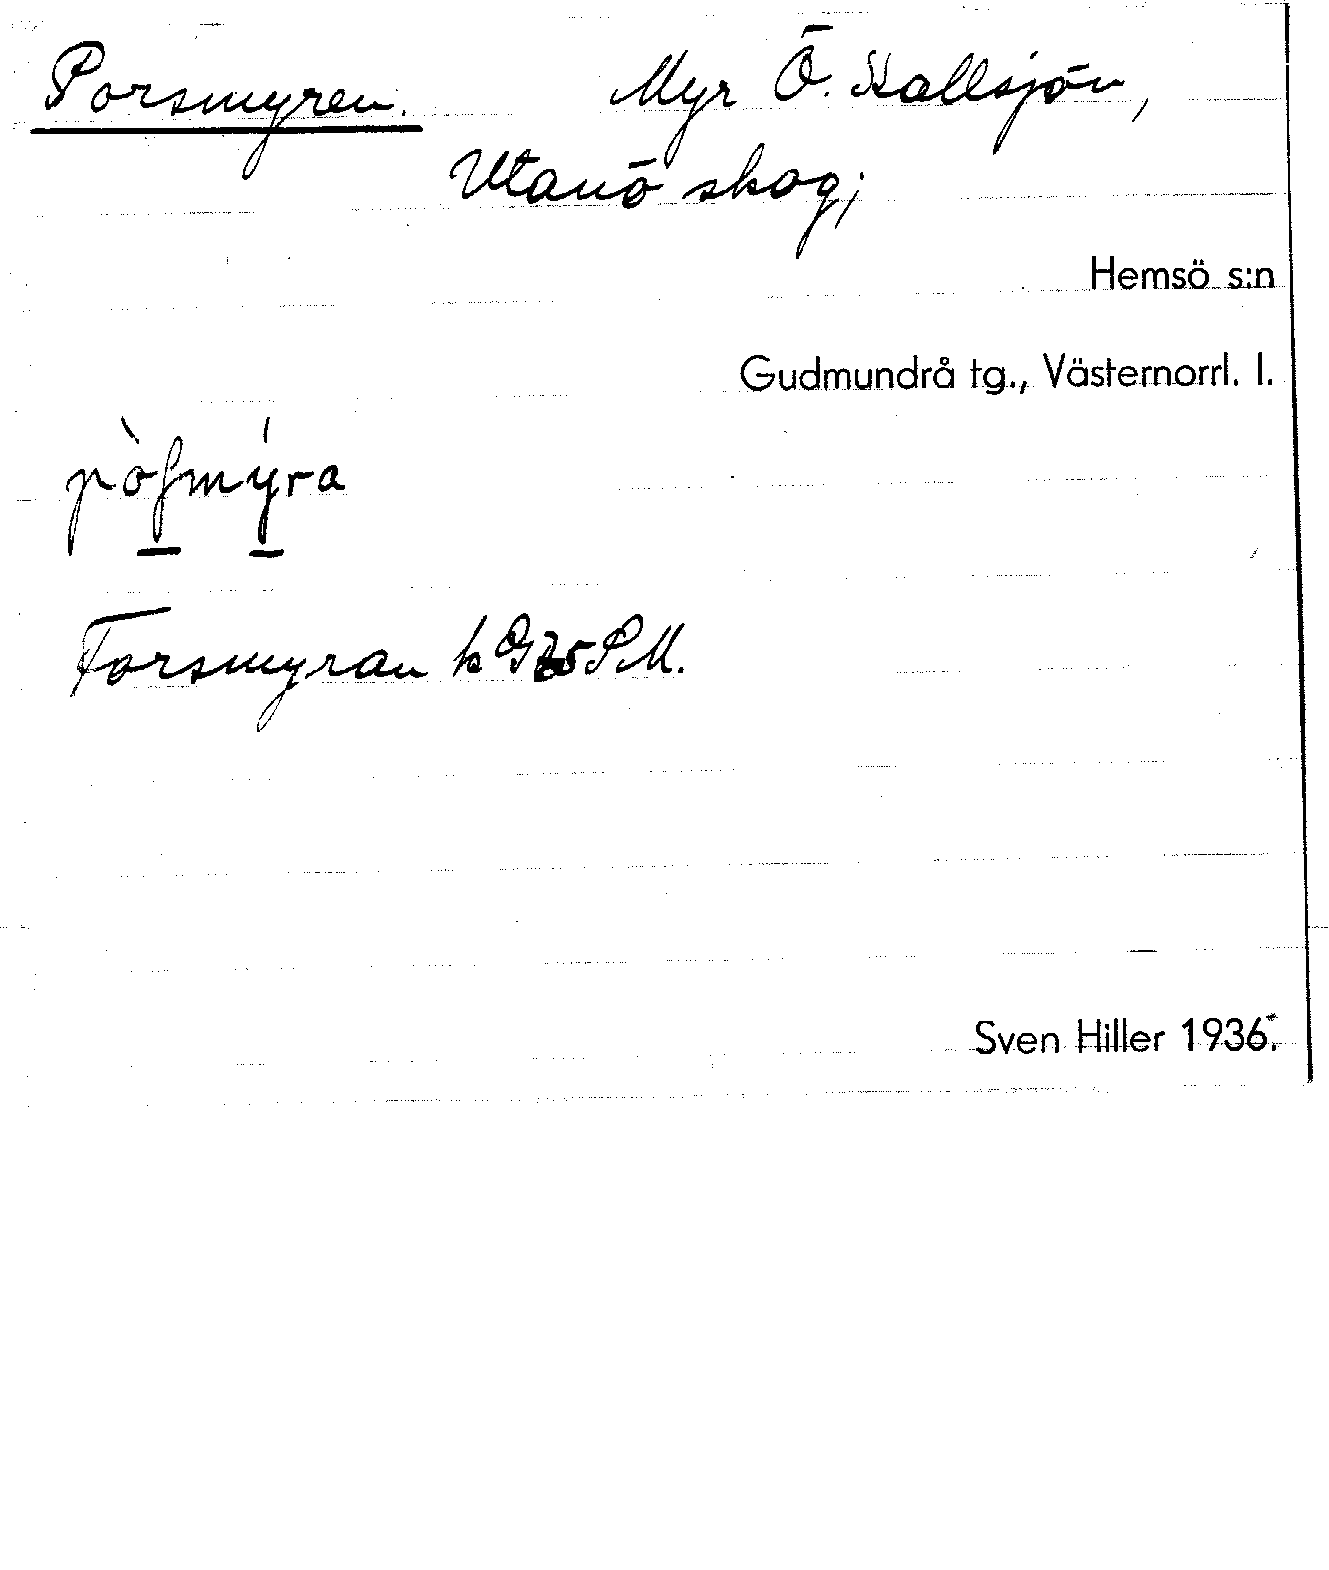 Porsmyren. Myr Ö. Kallsjön,
Utanö skog;
Hemsö s:n
Gudmundrå tg., Västernorrl. l.
Forsmyran
Sven Hiller 1936.